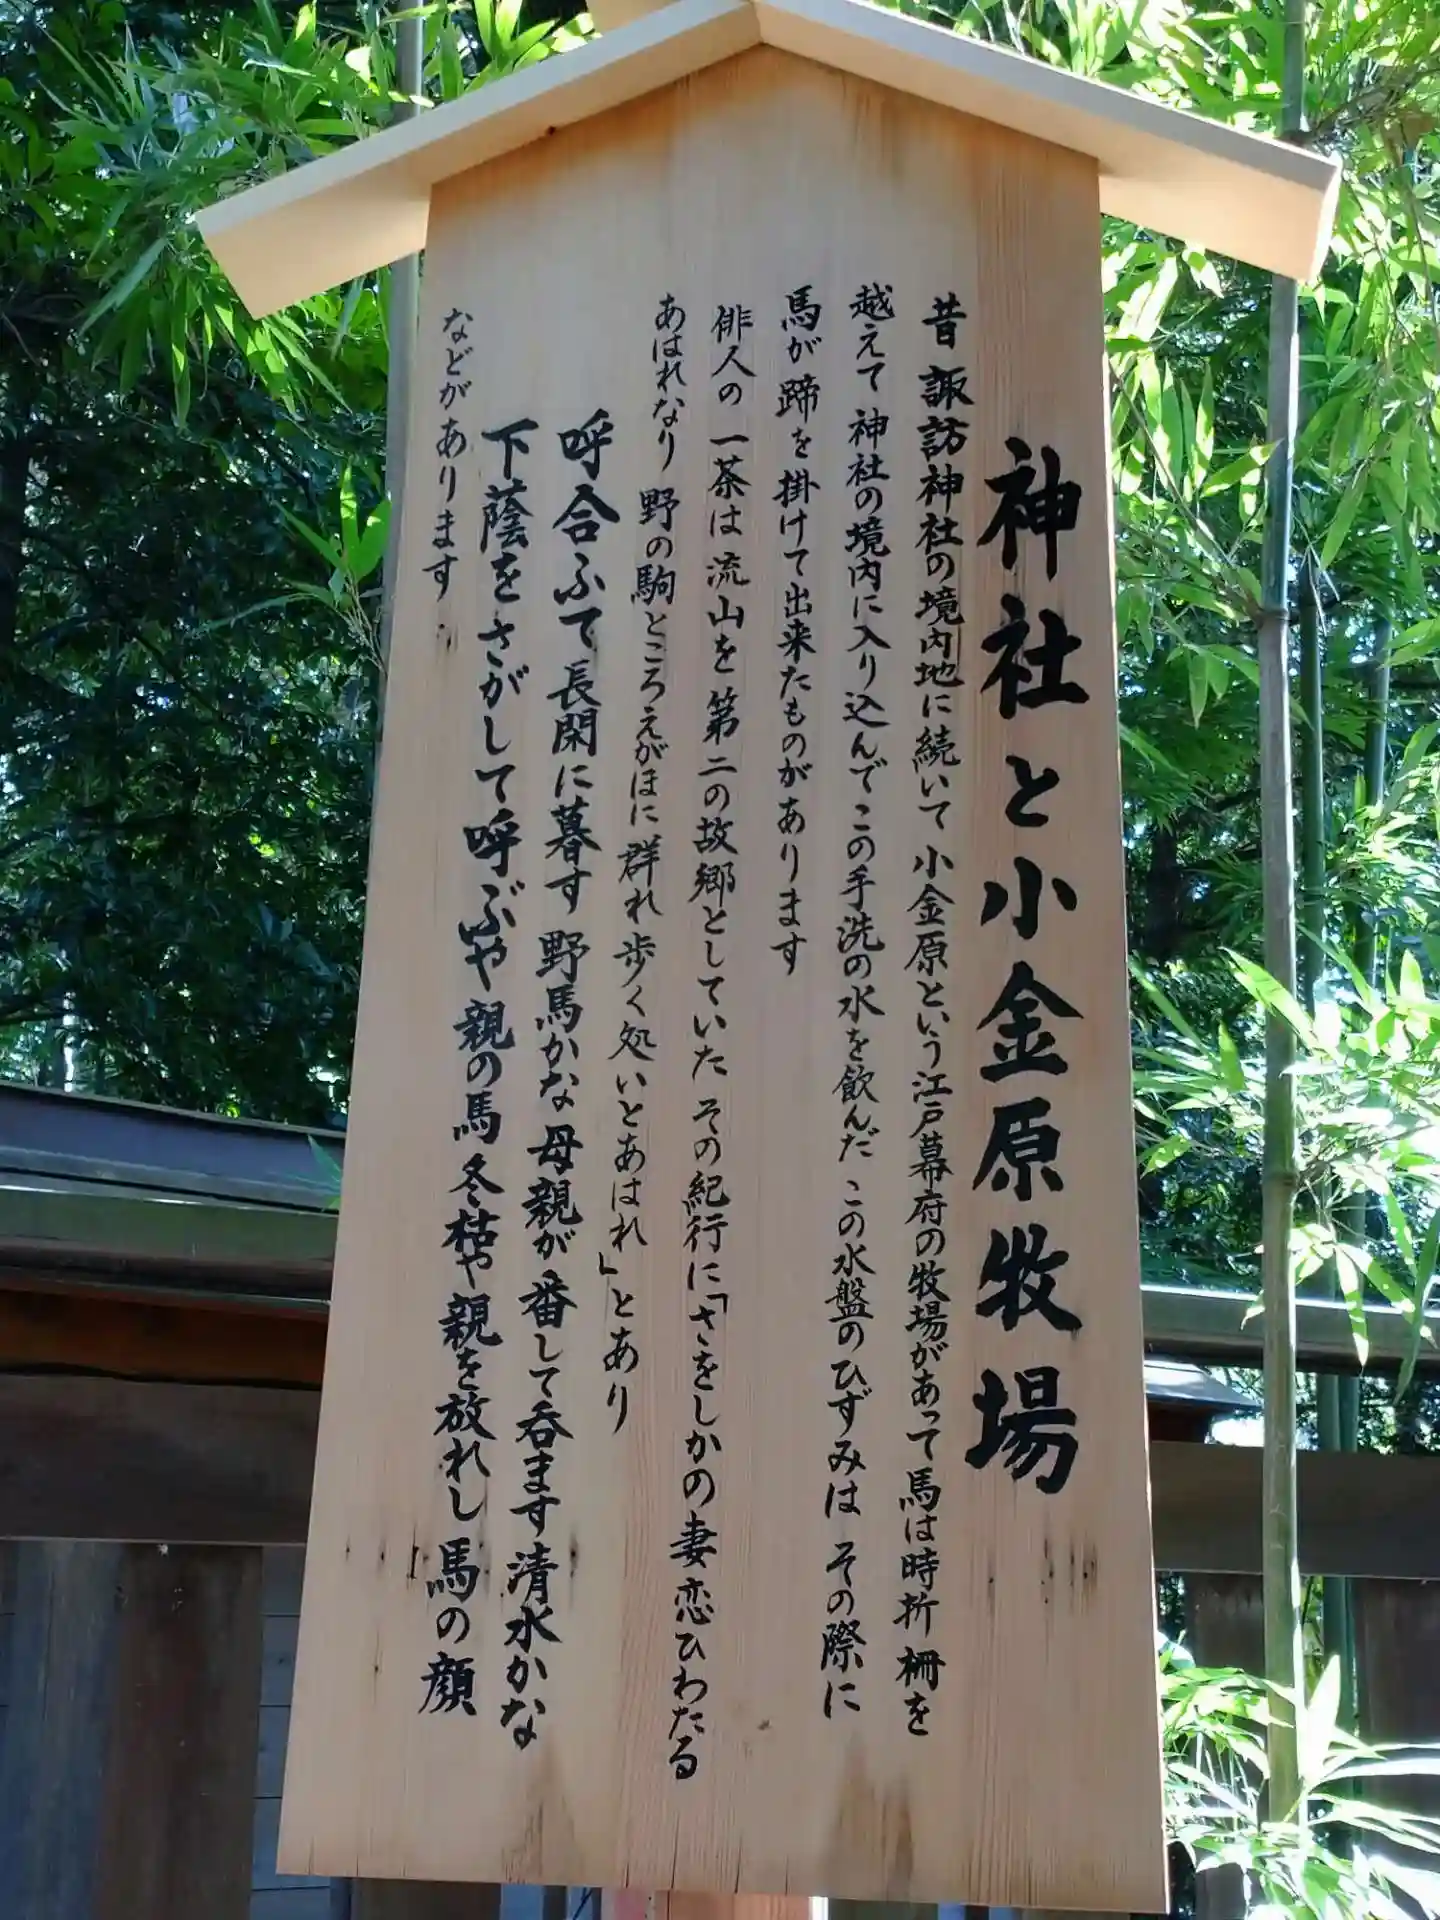 神社と小金原牧場
昔 諏訪神社の境内地に続いて 小金原という江戸幕府の牧場があって 馬は時折 柵を
越えて 神社の境内に入り込んでこの手洗の水を飲んだ この水盤のひずみは その際に
馬が 蹄を掛けて出来たものがあります
俳人の 一茶は 流山を 第二の故郷としていた その紀行に「さをしかの妻恋ひわたる
あはれなり 野の駒ところえがほに 群れ歩く処いとあはれ」とあり
呼合ふて長閑に暮す 野馬かな 母親が番して呑ます清水かな
下蔭をさがして呼ぶや親の馬 冬枯や親を放れし馬の顔
などがあります